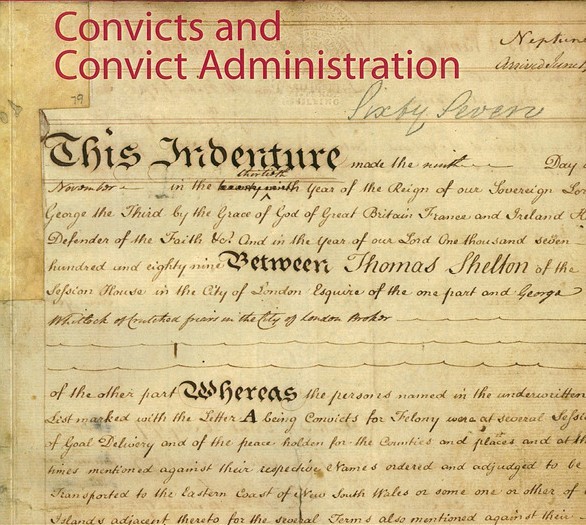 Convicts and
Convict Administration
Neptune
Arrived June
79
Sixty Seven
This Indenture made the ninth Day o
thirtieth
November in the twenty ninth Year of the Reign of our Sovereign Lor
George the Third by the Grace of God of Great Britain France and Ireland K
Defender of the Faith &c. And in the Year of our Lord One thousand seven
hundred and eighty nine Between Thomas Shelton of the
Session House in the City of London Esquire of the one part and George
Whitlock of Crutched friars in the City of London Broker
of the other part Whereas the persons named in the underwritten
List marked with the Letter A being Convicts for Felony were at several Sessio
of Goal Delivery and of the peace holden for the Counties and places and at th
times mentioned against their respective Names ordered and adjudged to be
Transported to the Eastern Coast of New South Wales or some one or other of
Islands adjacent thereto for the several Terms also mentioned against their